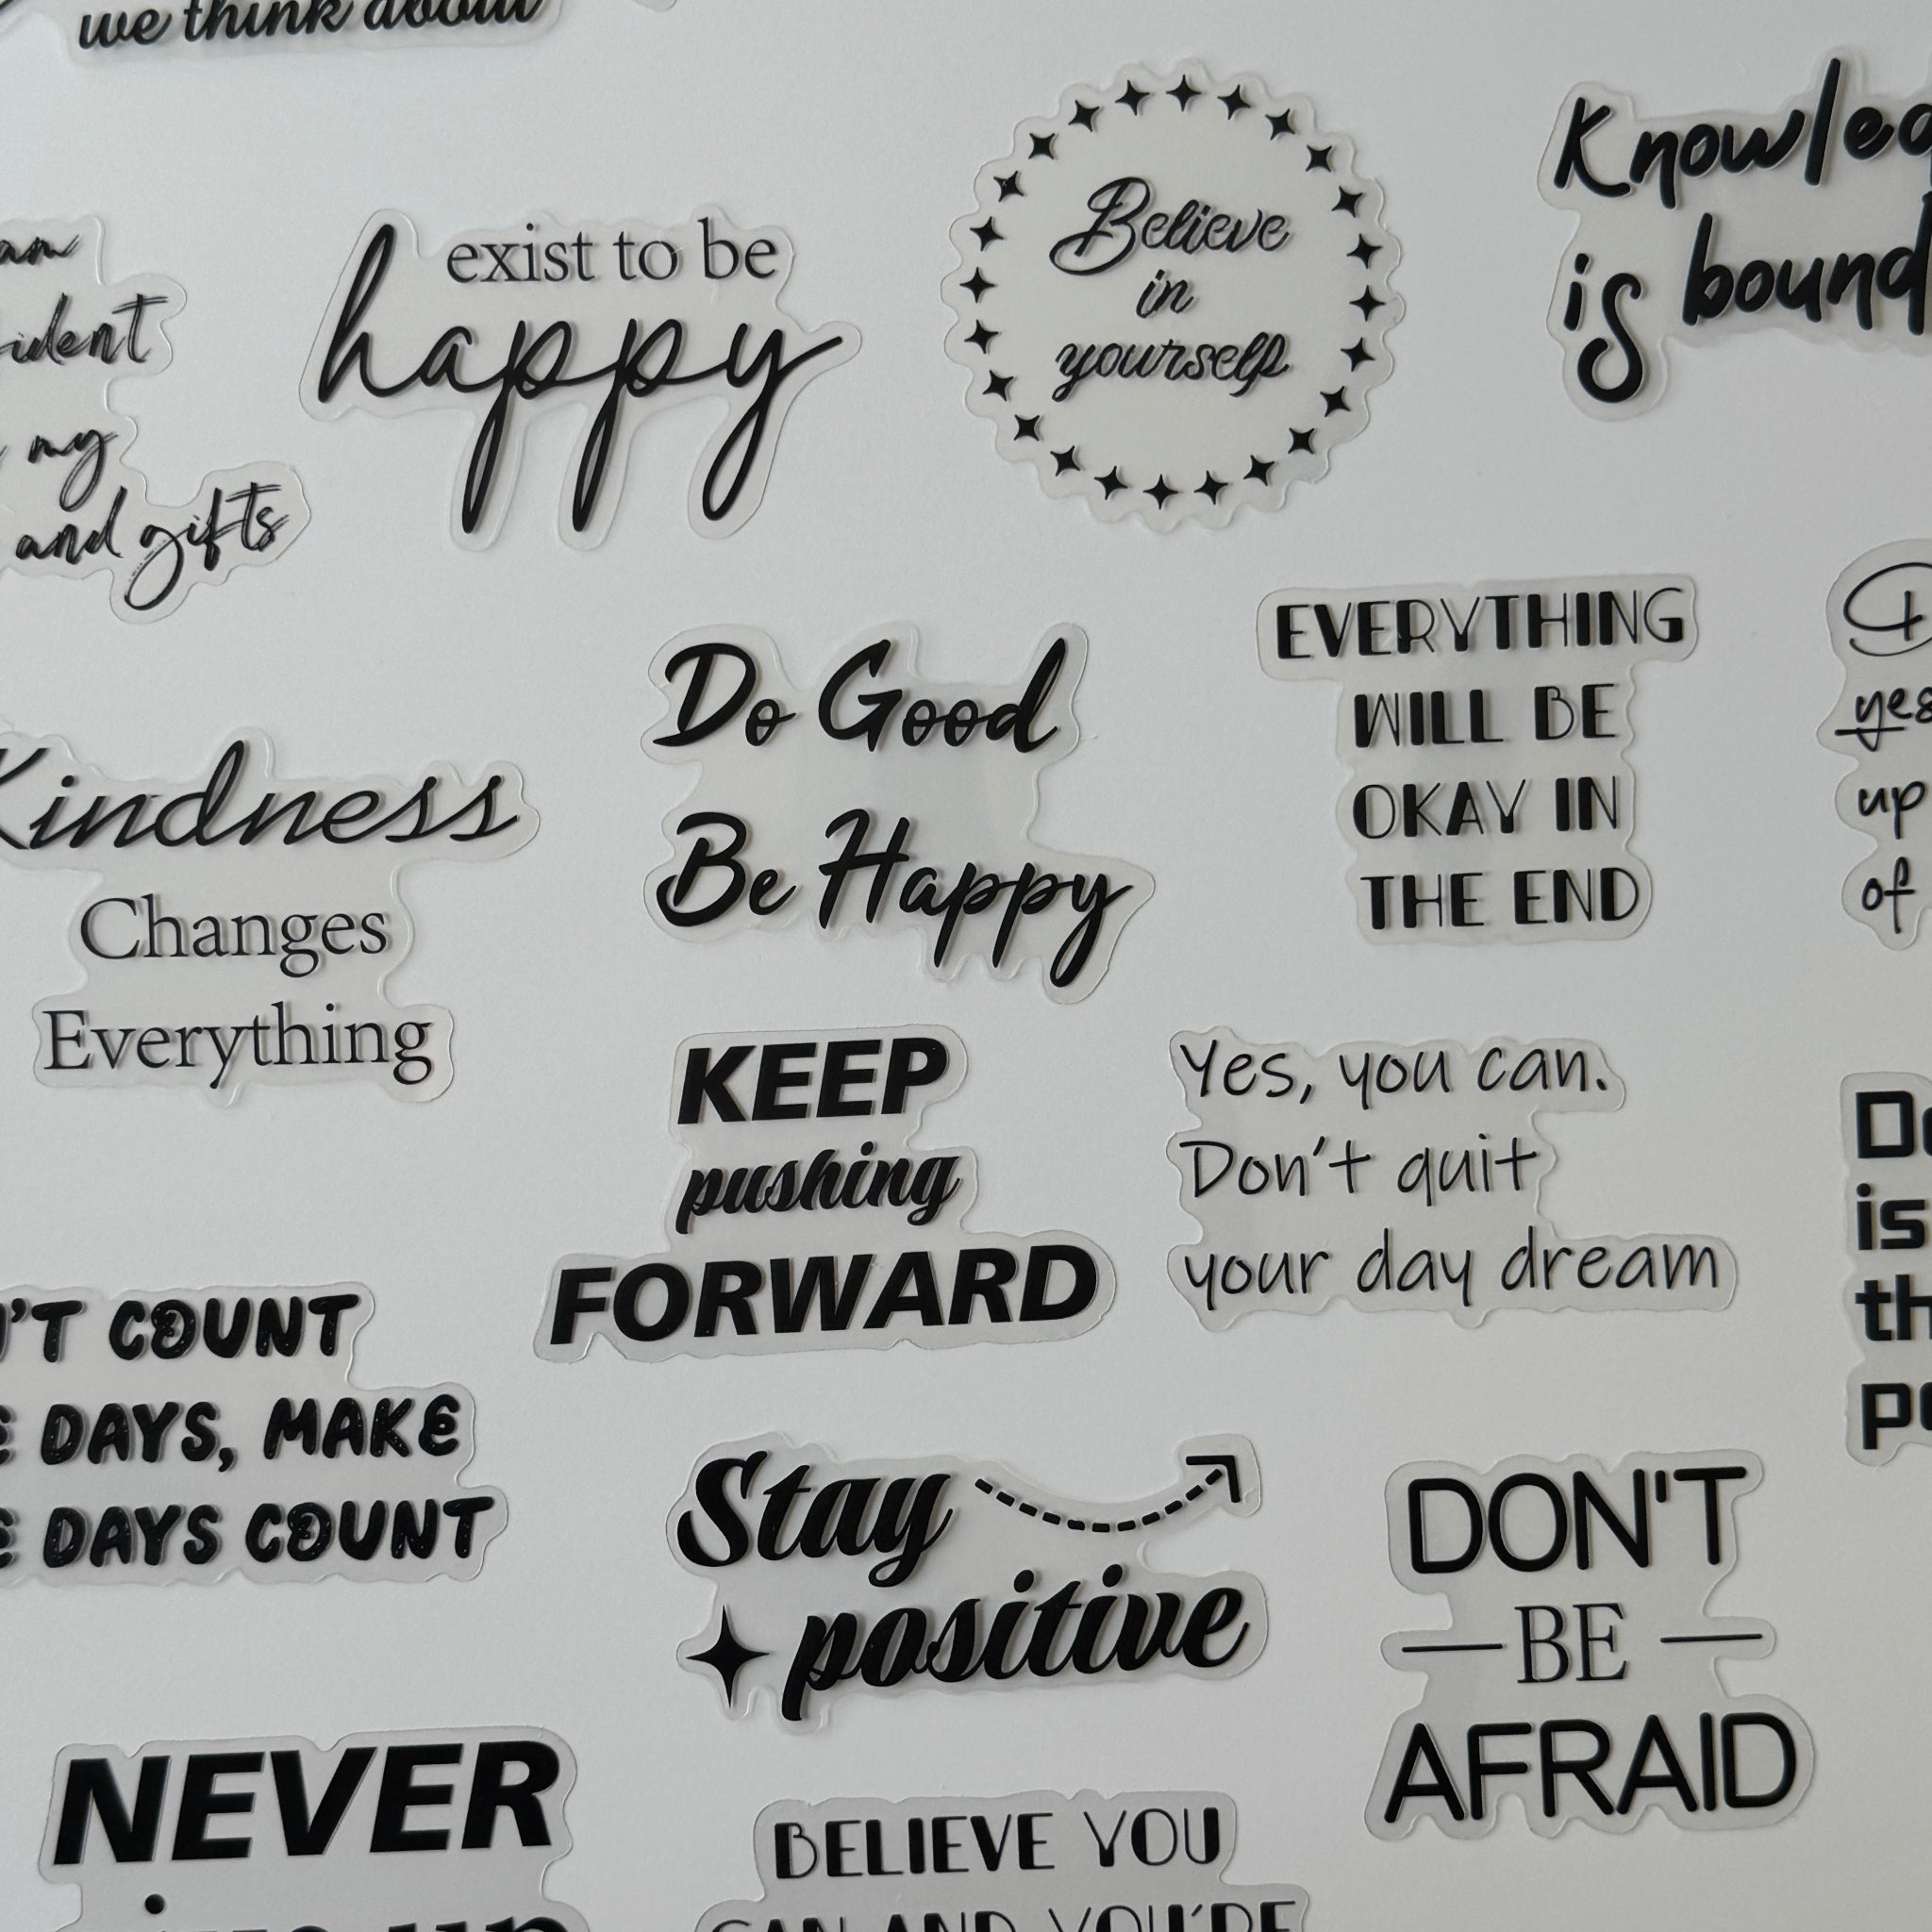 we think about
exist to be
happy
Believe
in
yourself
is bound
am
my
and gifts
Do Good
Be Happy
EVERYTHING
WILL BE
OKAY IN
THE END
yes
up
of
Kindness
Changes
Everything
KEEP
pushing
FORWARD
Yes, you can.
Don't quit
your day dream
is
COUNT
DAYS, MAKE
DAYS COUNT
Stay
positive
DON'T
BE
AFRAID
NEVER
BELIEVE YOU
CAN AND YOU'RE